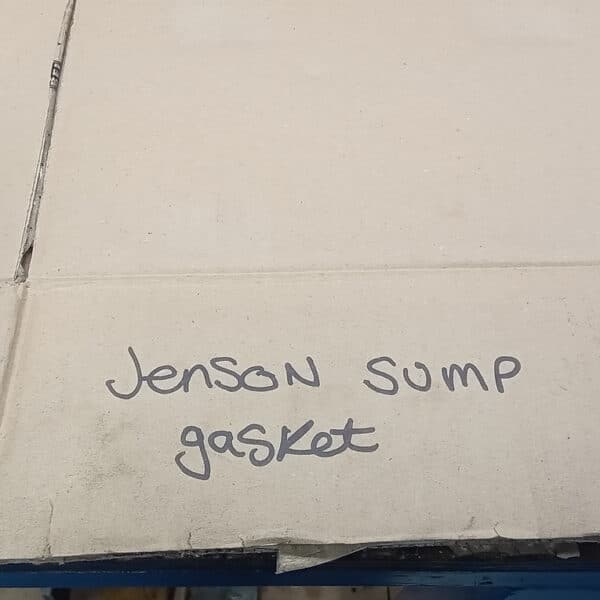 Jenson sump
gasket